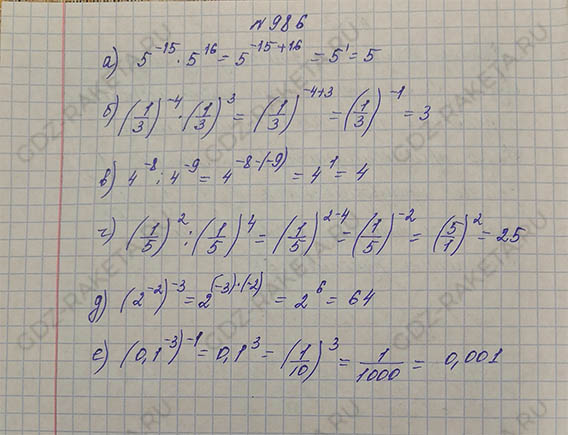 №986
а) 5⁻¹⁵ · 5¹⁶ = 5⁻¹⁵⁺¹⁶ = 5¹ = 5
б) (1/3)⁻⁴ · (1/3)³ = (1/3)⁻⁴⁺³ = (1/3)⁻¹ = 3
в) 4⁻⁸ : 4⁻⁹ = 4⁻⁸⁻⁽⁻⁹⁾ = 4¹ = 4
г) (1/5)² : (1/5)⁴ = (1/5)²⁻⁴ = (1/5)⁻² = (5/1)² = 25
д) (2⁻²)⁻³ = 2⁽⁻³⁾˙⁽⁻²⁾ = 2⁶ = 64
е) (0,1⁻³)⁻¹ = 0,1³ = (1/10)³ = 1/1000 = 0,001
GDZ-RAKETA.RU